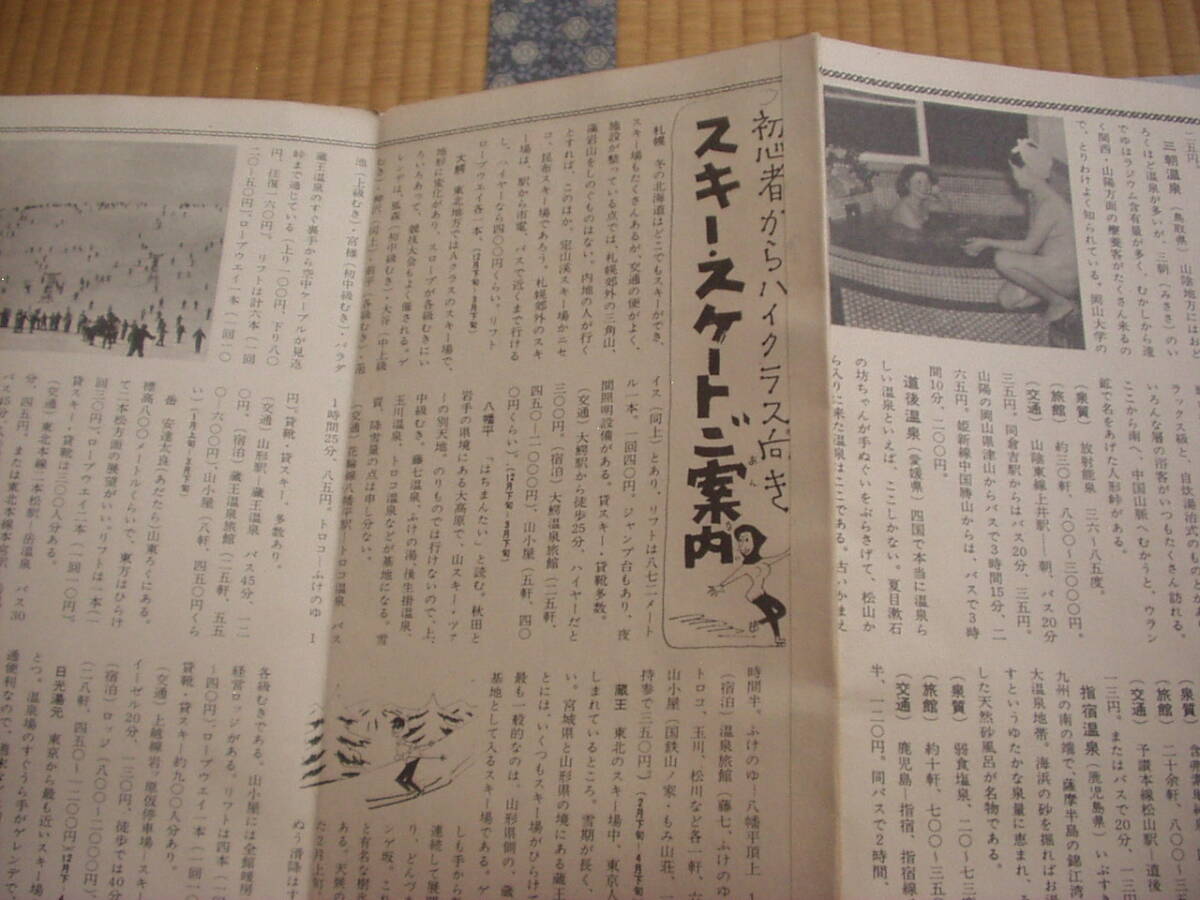 二五円。
三朝温泉（鳥取県） 山陰地方にはおど
ろくほど温泉が多いが、三朝（みささ）のい
でゆはラジウム含有量が多く、むかしから遠
く関西・山陽方面の療養客がたくさん来るの
で、とりわけよく知られている。岡山大学の
いろんな層の浴客がいつもたくさん訪れる。
ここから南へ、中国山脈へむかうと、ウラン
鉱で名をあげた人形峠がある。
（泉質） 放射能泉 三六～八五度。
（旅館） 約三〇軒、八〇〇～三〇〇〇円。
（交通） 山陰東線上井駅―朝、バス20分
三五円。同倉吉駅からはバス20分、三五円。
山陽の岡山県津山からバスで3時間15分、二
六五円。姫新線中国勝山からは、バスで3時
間10分、二〇〇円。
道後温泉（愛媛県） 四国で本当に温泉ら
しい温泉といえば、ここしかない。夏目漱石
の坊ちゃんが手ぬぐいをぶらさげて、松山か
ら入りに来た温泉はここである。古いかまえ
（泉質）
（旅館） 二十余軒、八〇〇～三五
（交通） 予讃本線松山駅―道後
一三円。またはバスで20分、一三円
指宿温泉（鹿児島県） いぶすき
九州の南の端で、薩摩半島の錦江湾
大温泉地帯。海浜の砂を掘ればお湯
すというゆたかな泉量に恵まれ、
した天然砂風呂が名物である。
（泉質） 弱食塩泉、二〇～七三度
（旅館） 約十軒、七〇〇～三五〇
（交通） 鹿児島―指宿、指宿線
半、一二〇円。同バスで2時間、
初心者からハイクラス向き
スキー・スケートご案内
あんない
札幌 冬の北海道はどこでもスキーができ、
スキー場もたくさんあるが、交通の便がよく、
施設が整っている点では、札幌郊外の三角山、
藻岩山をしのぐものはない。内地の人が行く
とすれば、このほか、定山渓スキー場かニセ
コ、昆布スキー場であろう。札幌郊外のスキ
ー場は、駅から市電、バスで近くまで行ける
し、ハイヤーなら四〇〇円くらい。リフト
ロープウエイ各一本、（12月下旬―3月下旬）
大鰐 東北地方ではAクラスのスキー場で、
地形に変化があり、スロープが各級むきにい
ろいろあって、競技大会もよく催される。ゲ
レンデは、狐森（初中級むき）・大谷（中上級
イス（同上）とあり、リフトは八七二メート
ル一本。一回四〇円。ジャンプ台もあり、夜
間照明設備がある。貸スキー・貸靴多数。
（交通） 大鰐駅から徒歩25分、ハイヤーだと
三〇〇円。（宿泊） 大鰐温泉旅館（二五軒、
四五〇―一〇〇〇円）、山小屋（五軒、四〇
〇円くらい）。（12月下旬―3月下旬）
八幡平 『はちまんたい』と読む。秋田と
岩手の県境にある大高原で、山スキー・ツァ
ーの別天地。のりものでは行けないので、上、
中級むき。藤七温泉、ふけの湯、後生掛温泉、
玉川温泉、トロコ温泉などが基地になる。雪
質、降雪量の点は申し分ない。
（交通） 花輪線八幡平駅―トロコ温泉 バス
1時間25分、八五円。トロコ―ふけのゆ 1
時間半。ふけのゆ―八幡平頂上 1
（宿泊） 温泉旅館（藤七、ふけのゆ
トロコ、玉川、松川など各一軒、六
山小屋（国鉄山ノ家・もみ山荘、
持参で三五〇円）（2月下旬―4月下旬）
蔵王 東北のスキー場中、東京人
しまれているところ。雪期が長く、
い。宮城県と山形県の境にある蔵王
とには、いくつもスキー場がひらけて
最も一般的なのは、山形県側の、蔵
基地として入るスキー場である。ゲ
しも手から
連続して展開
り、どんづま
ンゲ坂、これ
と有名な樹氷
ある。天候の
ぬう滑降はす
池（上級むき）・宮様（初中級むき）・パラダ
蔵王温泉のすぐ裏手から空中ケーブルが見返
峠まで通じている（上り一〇〇円、下り八〇
円、往復一六〇円）。リフトは計六本（一回
二〇―五〇円）。ロープウエイ一本（一回一〇
円）。貸靴、貸スキー、多数あり。
（交通） 山形駅―蔵王温泉 バス45分、一二
〇円。（宿泊） 蔵王温泉旅館（二五軒、五五
〇―六〇〇〇円）、山小屋（八軒、四五〇円くら
い）（1月上旬―3月下旬）
岳 安達太良（あだたら）山東ろくにある。
標高八〇〇メートルくらいで、東方はひらけ
て二本松方面の展望がいい。リフトは一本（一
回三〇円）。ロープウエイ二本（一回一〇円）。
貸スキー・貸靴は三〇〇人分ある。
（交通） 東北本線二本松駅―岳温泉 バス30
分、四五円。または東北本線本宮駅
各級むきである。山小屋には全館暖房
経営ロッジがある。リフトは四本（一回
～四〇円）。ロープウエイ一本（一回一〇
貸靴・貸スキー約九〇〇人分あり。
（交通） 上越線岩ッ原仮停車場―スキー
イーゼル20分、一三〇円、徒歩では40分
（宿泊） ロッジ（八〇〇―二〇〇〇円）、
（二八軒、四五〇―一二〇〇円）
日光湯元 東京から最も近いスキー場
とつ。温泉場のすぐうら手がゲレンデで、